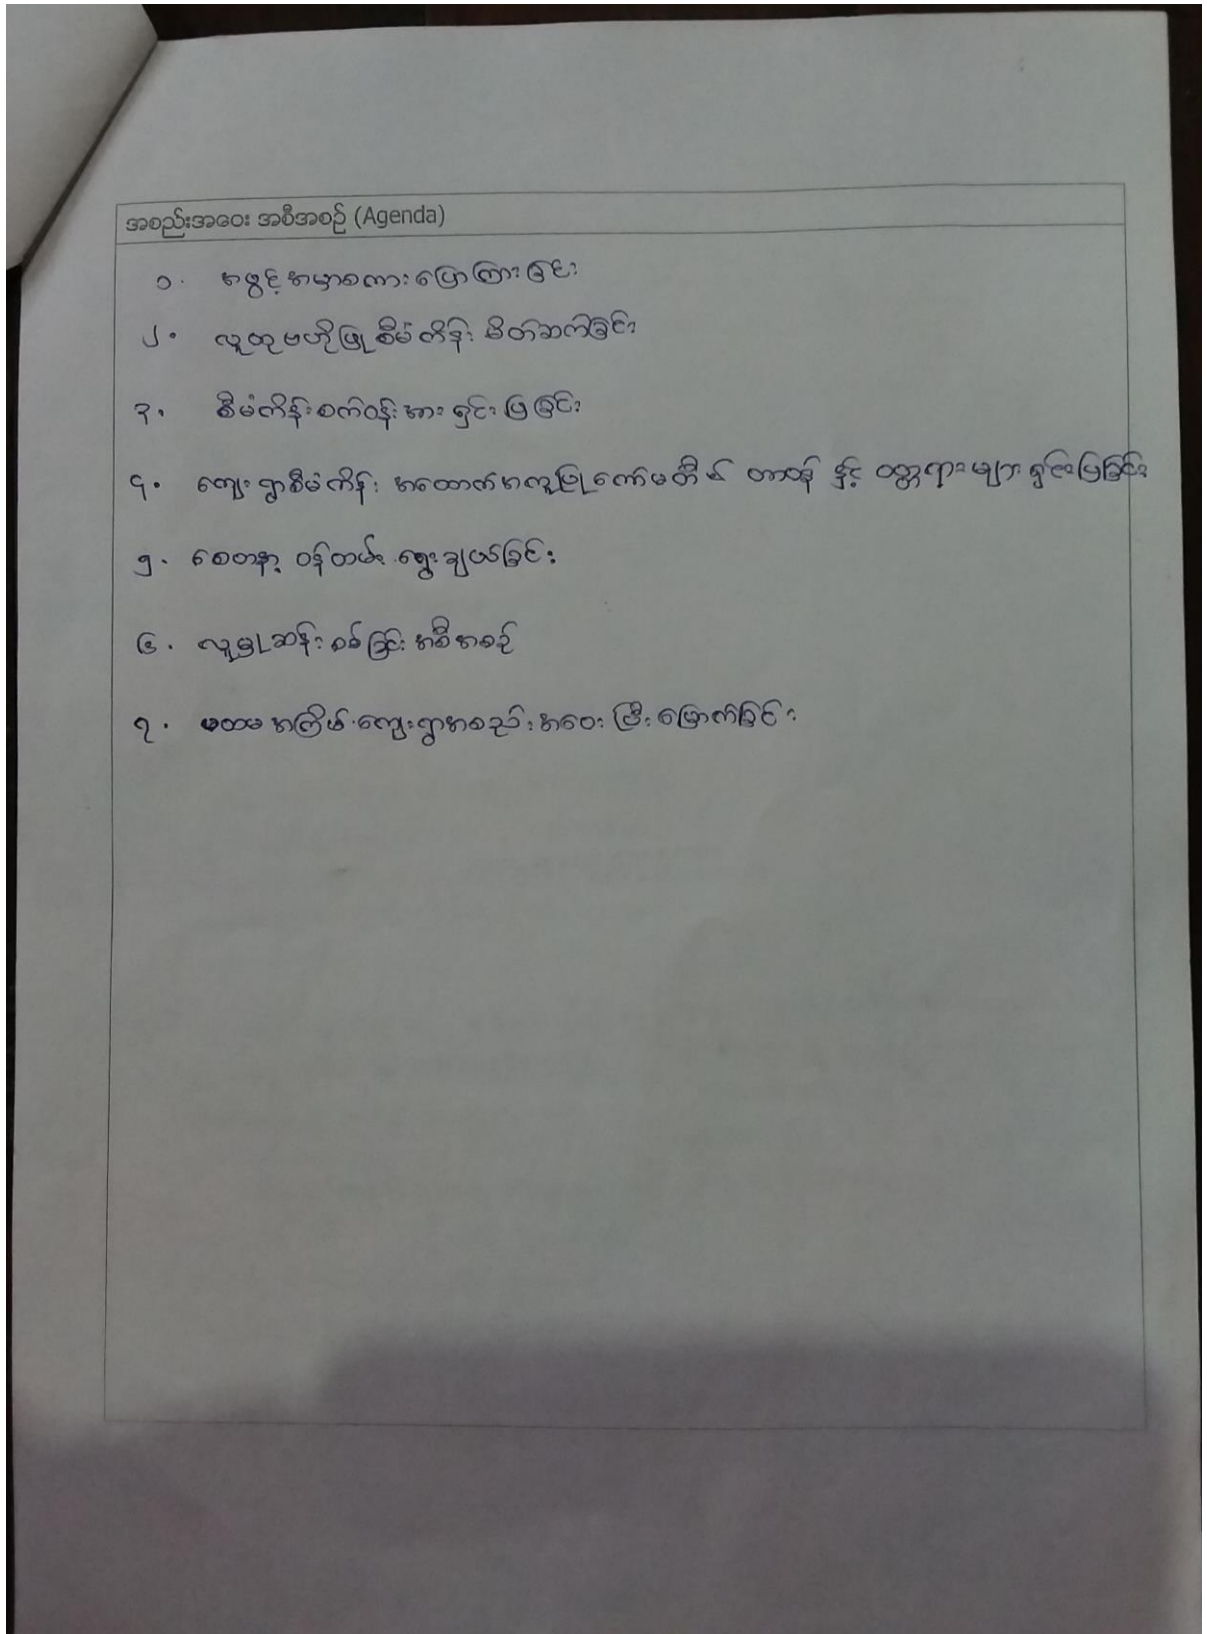 အစည်းအဝေး အစီအစဉ် (Agenda)
၁. အဖွင့်အမှာစကားပြောကြားခြင်း
၂. လူထုဗဟိုပြုစီမံကိန်း မိတ်ဆက်ခြင်း
၃. စီမံကိန်းစက်ဝန်းအားရှင်းပြခြင်း
၄. ကျေးရွာစီမံကိန်း အထောက်အကူပြုကော်မတီ၏ တာဝန် နှင့် ဝတ္တရားများရှင်းပြခြင်း
၅. စေတနာ့ ဝန်ထမ်း ရွေးချယ်ခြင်း
၆. လူမှုဆန်းစစ်ခြင်း အစီအစဉ်
၇. ပထမအကြိမ်ကျေးရွာအစည်းအဝေးပြီးမြောက်ခြင်း